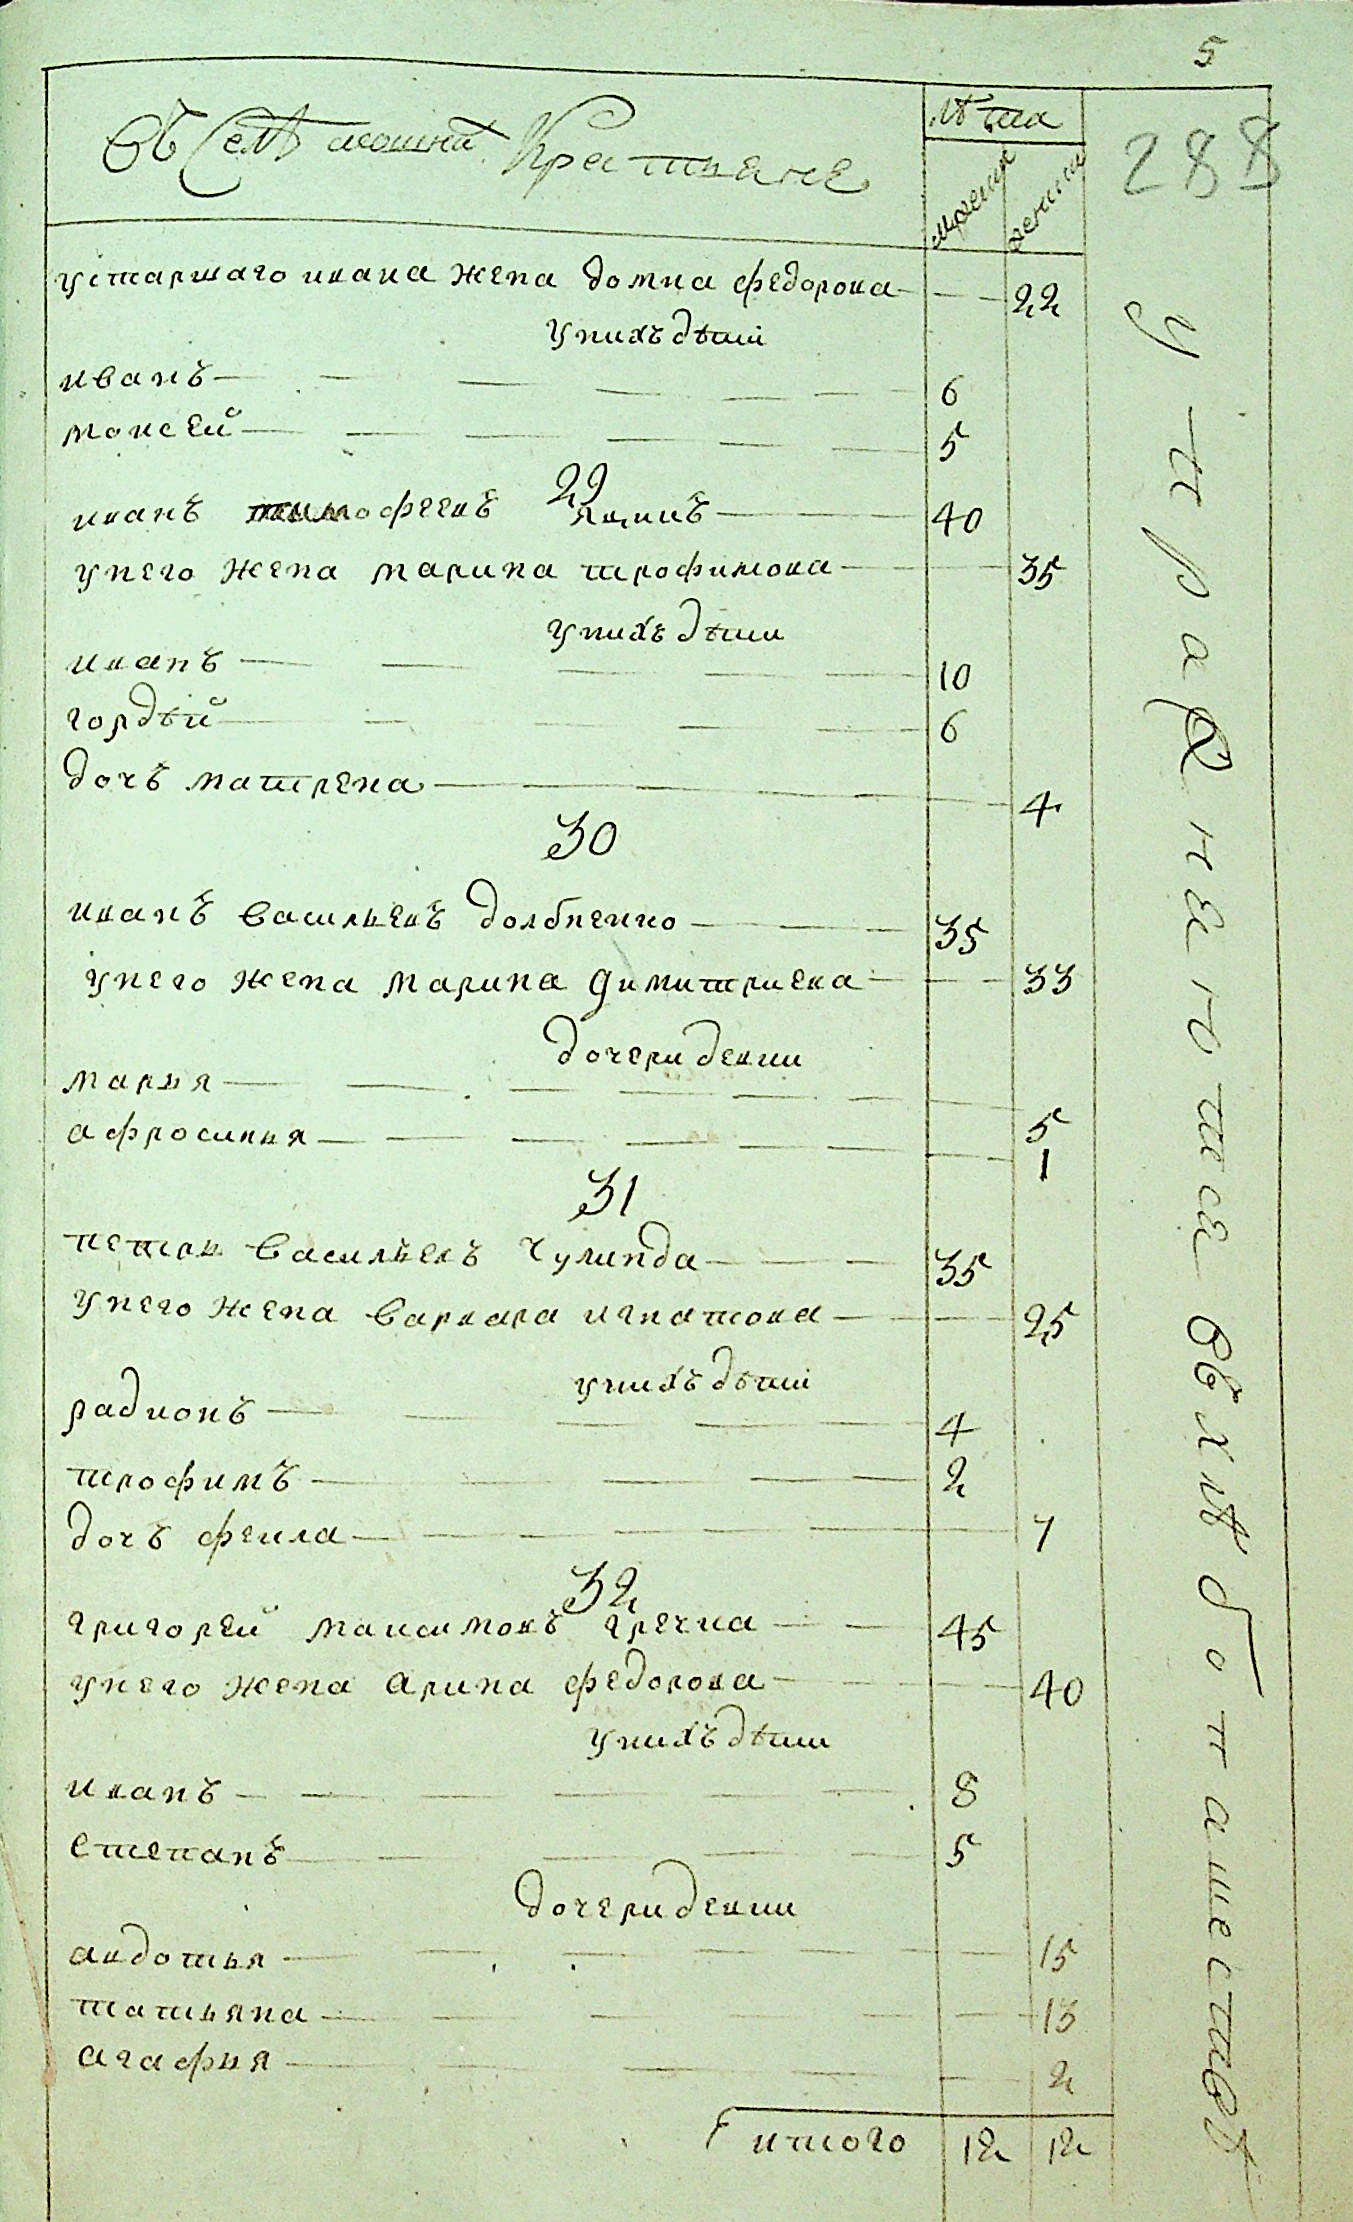 5
въ Селѣ мошнахъ Крестьяне
лѣта
мужеск
женски
288
устаршаго ивана жена домна федорова 22
унихъ дѣти
иванъ 6
моисей 5
29
иванъ тимофеевъ яцинъ 40
унего жена марина трофимова 35
унихъ дѣти
иванъ 10
гордѣй 6
дочь матрена 4
30
иванъ васильевъ долбненко 35
унего жена марина димитриева 33
дочери девки
марья 5
афросинья 1
31
петръ васильевъ чулинда 35
унего жена варвара игнатова 25
унихъ дѣти
радионъ 4
трофимъ 2
дочь фекла 7
32
григорей максимовъ гречка 45
унего жена арина федорова 40
унихъ дѣти
иванъ 8
степанъ 5
дочери девки
авдотья 15
татьяна 13
агафья 2
итого 12 12
упражнеются въ хлѣбопашествѣ